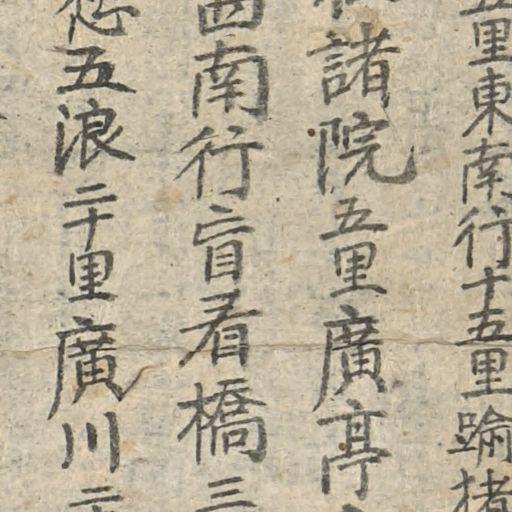 里東南行十五里踰猪
諸院五里廣亭
南行盲看橋三
五浪二十里廣川二